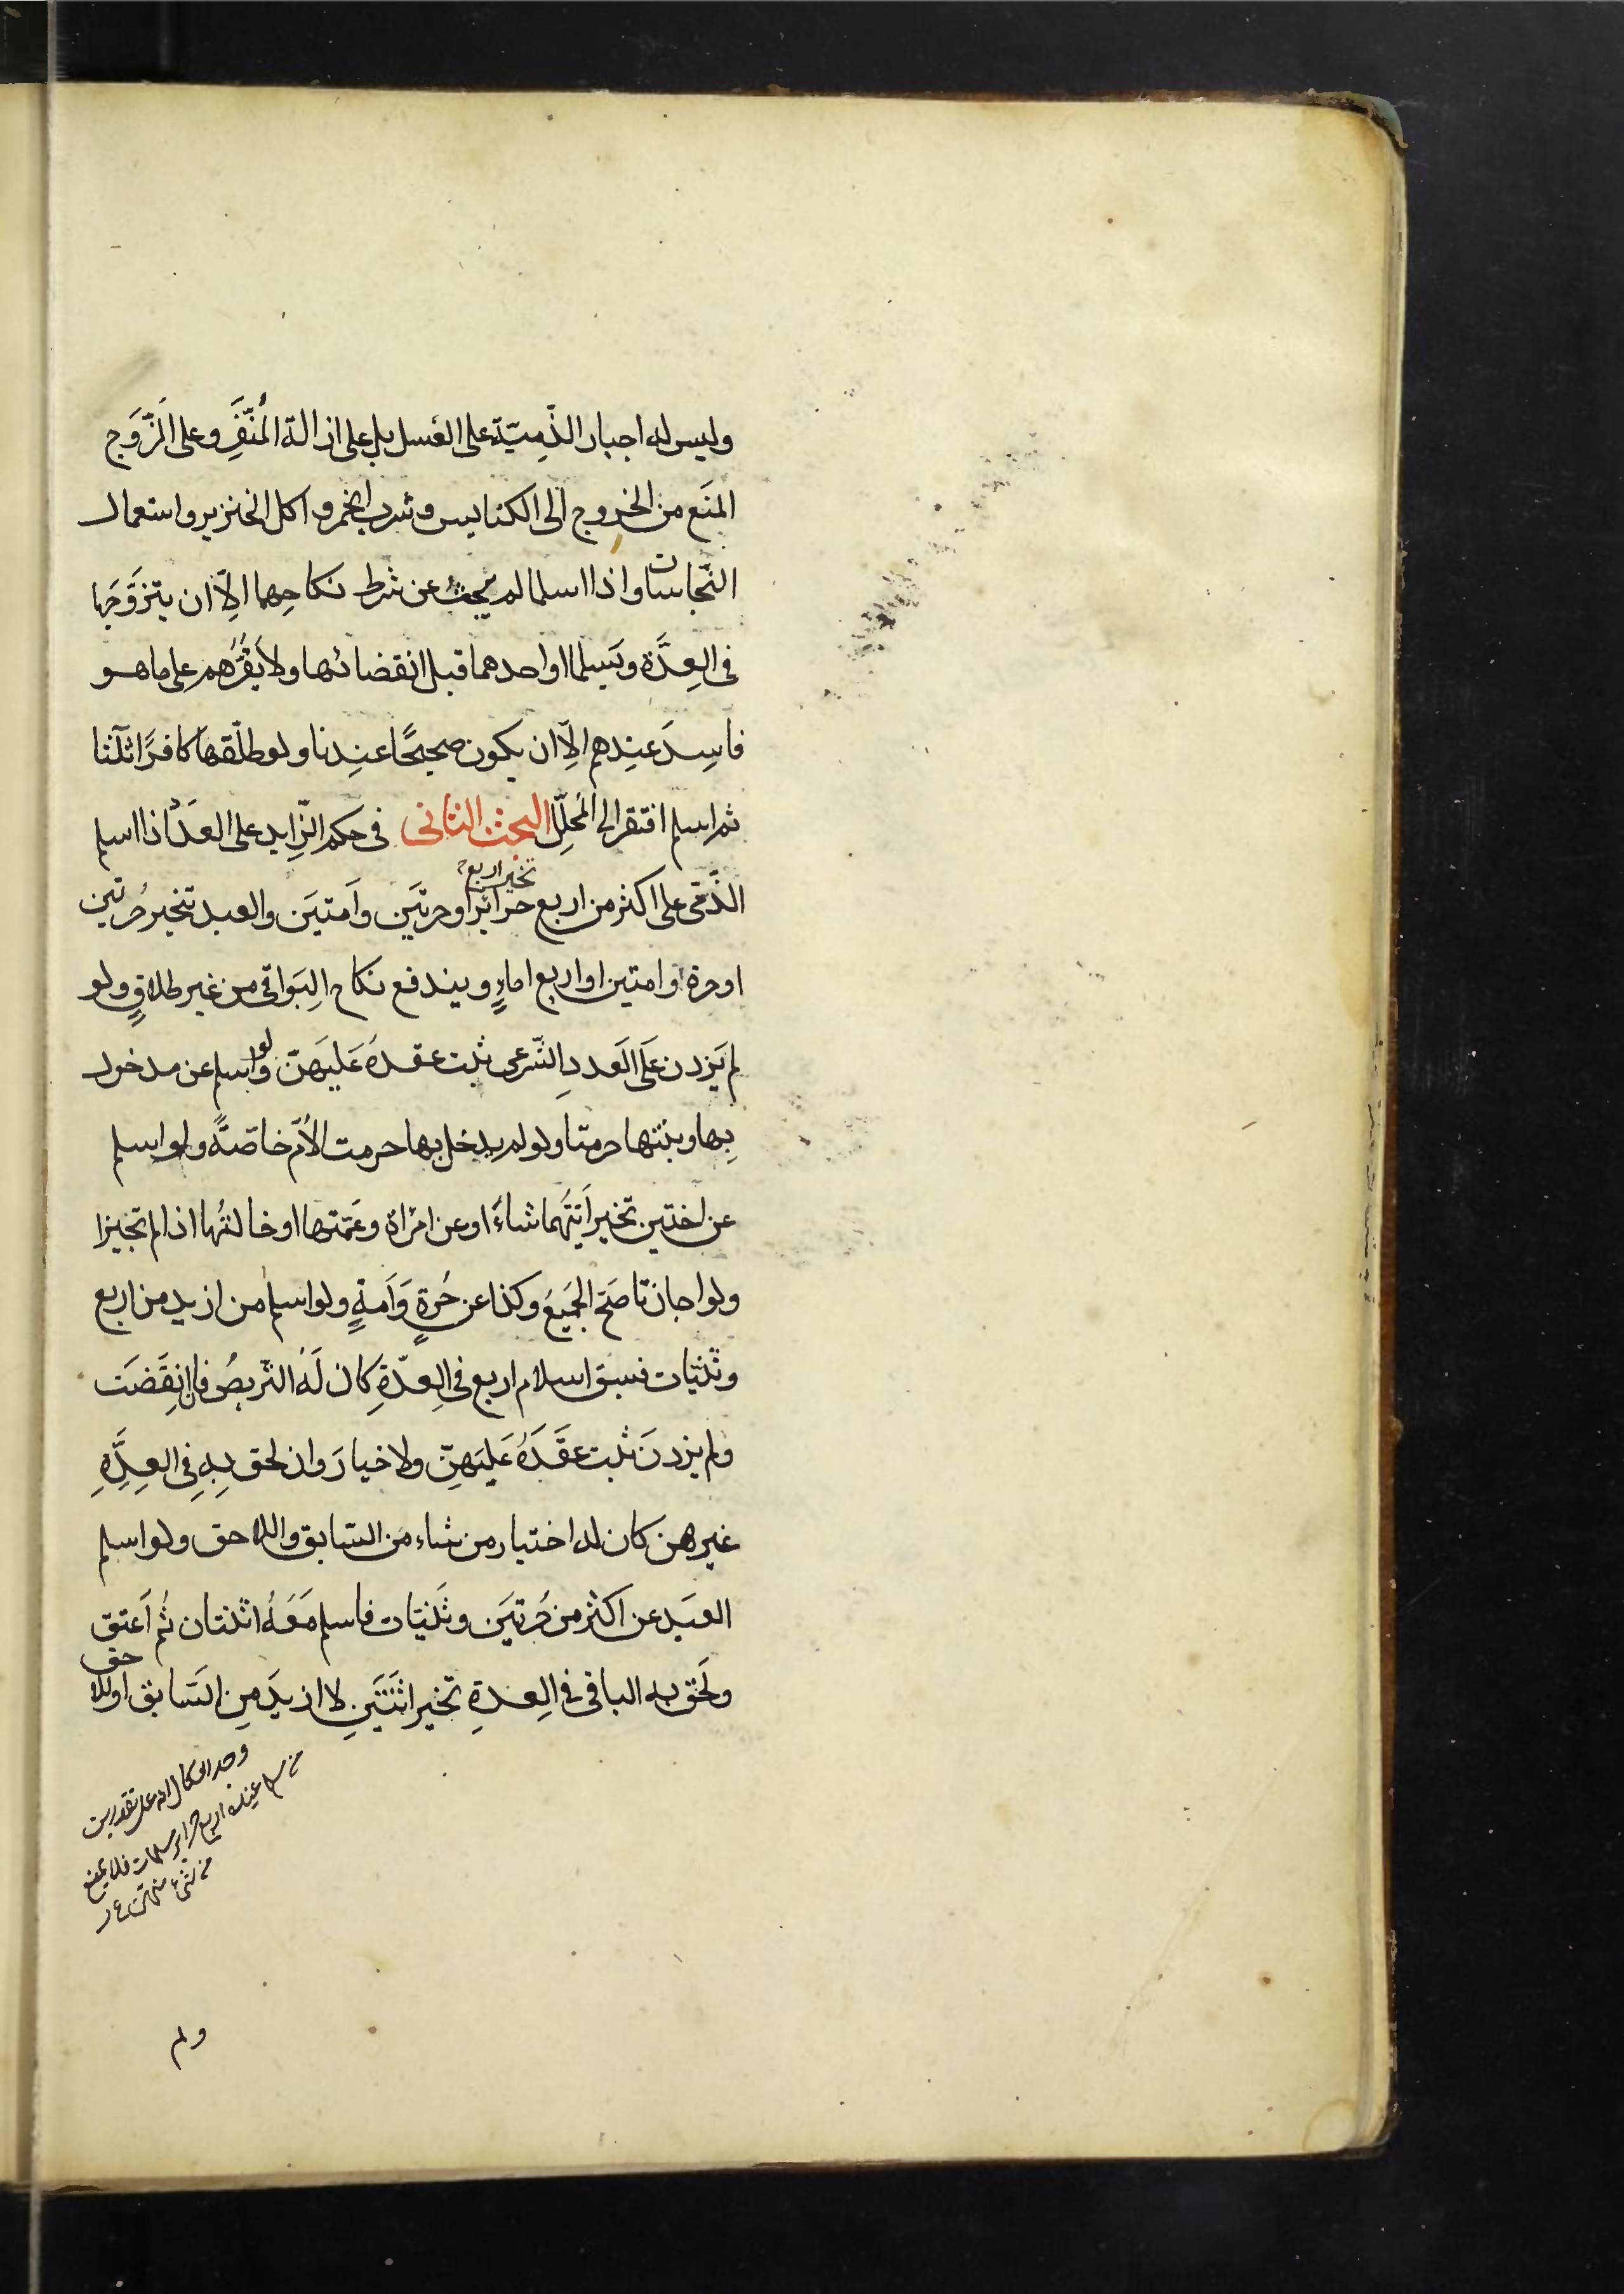 وليس له اجبار الذِّميّة على الغسل بل على ازالة المُنَفِّر وعلى الزَّوج
المنَع من الخروج الى الكنايس وشرب الخمر و اكل الخنزير واستعمال
النّجاسات واذا اسلما لم يبحث عن شرط نكاحِهما الِاّ ان يتزَوَّجَها
فى العِدَّة ويَسلما او احدهما قبل انقضائها ولا يَقرُّهم على ما هو
فاسِدَ عنِدهم الِاّ ان يكون صحيحًا عنِدنا ولو طلّقها كافرًا ثلَثا
ثم اسلم افتقر الى المُحلِّل البحث الثانى فى حكم الزّايد على العدَد اذا اسلم
الذّمّى على اكثر من اربع حرائر تخير اربع او حرتيَن وَاَمتيَن والعبد تخير حُرتين
او حرة وامتين او اربع اماءٍ ويندفع نكاح البَواقى من غير طلاقٍ ولو
لم يَزدن عَلَى العَددِ الشّرعى ثبت عقدهُ عَليَهنّ ولو اسلم عن مدخول
بِها وبنتها حرمتا ولو لم يدخل بها حرمت الاُمّ خاصّةً ولو اسلم
عن اختين تخير اَيَّتَهُما شاءَ او عن امرْاة وعَمّتها او خالتُها اذا لم تجيزا
ولو اجازتا صَحّ الجَميَعُ وكذا عن حُرةٍ وَاَمةٍ ولو اسلم من ازيد من اربع
وثنيات فسبق اسلام اربع فى العِدّةِ كان لَهُ التّربصُ فان انِقَضَت
ولم يزدنَ ثبت عقَدَهُ عَليَهنِّ ولا خيارَ وان لحق بِهِ فِى العِدَّةِ
غيرهن كان له اختيار من شاء من السّابق واللاحق ولو اسلم
العبَد عن اكثر من حُرتيَن وثَنيّات فاسلم مَعَهُ اثنتان ثُم اَعتق
ولَحق به الباقى فى العِدةِ تخير اثنَتَيَنِ لا ازيدَ مِن السّابق او اللاحق
ولم